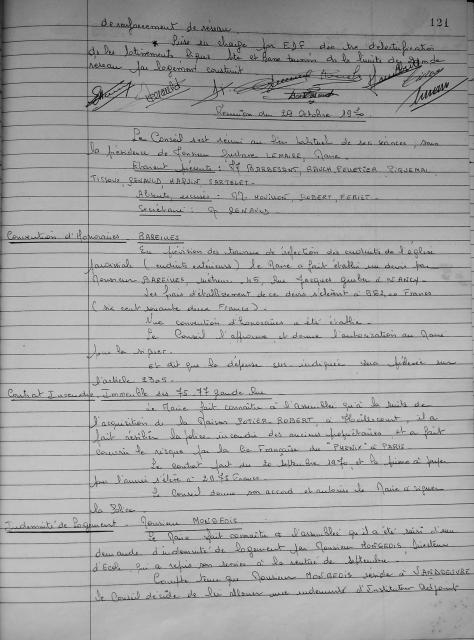 121
de renforcement de réseau.
* Prise en charge par EDF des
réseau par logement construit
Réunion du 29 Octobre 1970
Le Conseil s'est réuni au lieu habituel de ses séances, sous
la présidence de Monsieur Gustave LEMAIRE, Maire.
Etaient présents : MM BARBESANT, BAUCH, PELLETIER, PIQUEMAL
TISSOUX, RENAULD, MARSIN, SARTELET.
Absents, excusés : MM. ROBERT, FERIET.
Secrétaire : RENAULD.
Convention d'Honoraires BAREINES
En prévision des travaux de réfection des enduits de l'église
paroissiale (enduits extérieurs) le Maire a fait établir un devis par
Monsieur BAREINES, 45, Rue Jacques à NANCY.
Les frais d'établissement de ce devis s'élèvent à 662,00 Francs
(six cent soixante deux Francs).
Une convention d'honoraires a été établie.
Le Conseil l'approuve et donne l'autorisation au Maire
pour la signer.
et dit que la dépense sus-indiquée sera prélevée sur
l'article 3305.
Contrat Incendie, Immeuble sis 75-77 grande Rue
Le Maire fait connaître à l'assemblée qu'à la suite de
l'acquisition de la Maison POTIER ROBERT, à il a
fait résilier la police incendie des anciens propriétaires et a fait
couvrir le risque par la Cie Française du "PHENIX" à PARIS
Le contrat part du 20 Septembre 1970, et la prime à payer
pour l'année s'élève à Francs.
Le Conseil donne son accord et autorise le Maire à signer
la Police
Indemnité de Logement - Monsieur MONGEOIS
Le Maire fait connaître à l'assemblée qu'il a été saisi d'une
demande d'indemnité de logement par Monsieur MONGEOIS Directeur
d'Ecole qui a repris son service à la rentrée de Septembre.
Compte tenu que Monsieur MONGEOIS réside à VANDOEUVRE
le Conseil décide de lui allouer une indemnité d'Instituteur Adjoint